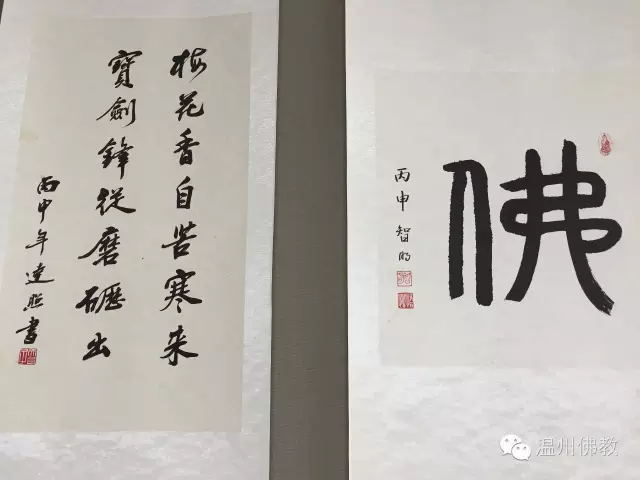 梅花香自苦寒来
寶劍鋒從磨礪出
丙申年達照書
佛
丙申智明
温州佛教